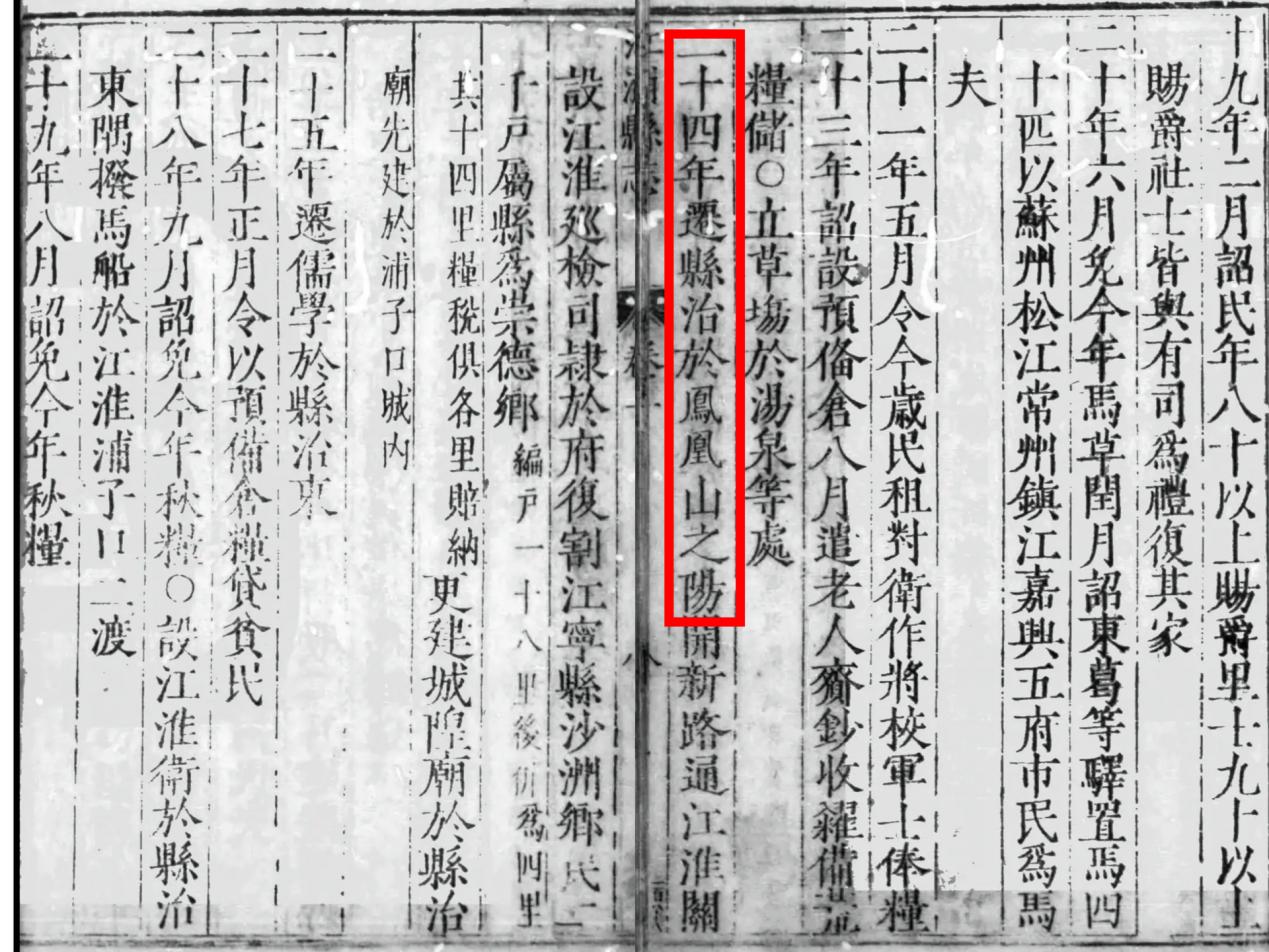 十九年二月詔民年八十以上賜爵里士九十以上
賜爵社士皆與有司爲禮復其家
二十年六月免今年馬草閏月詔東葛等驛置馬四
十匹以蘇州松江常州鎮江嘉興五府市民爲馬
夫
二十一年五月令今歲民租對衛作將校軍士俸糧
二十三年詔設預俻倉八月遣老人齎鈔收糴備荒
糧儲○立草塲於湯泉等處
二十四年遷縣治於鳳凰山之陽開新路通江淮關
江浦縣志 卷一 八
設江淮廵檢司隷於府復割江寧縣沙洲鄉民二
千戸屬縣爲崇德鄉編戸一十八里後併爲四里
其十四里糧稅俱各里賠納 更建城隍廟於縣治
廟先建於浦子口城內
二十五年遷儒學於縣治東
二十七年正月令以預備倉糧貸貧民
二十八年九月詔免今年秋糧○設江淮衛於縣治
東隅撥馬船於江淮浦子口二渡
二十九年八月詔免今年秋糧